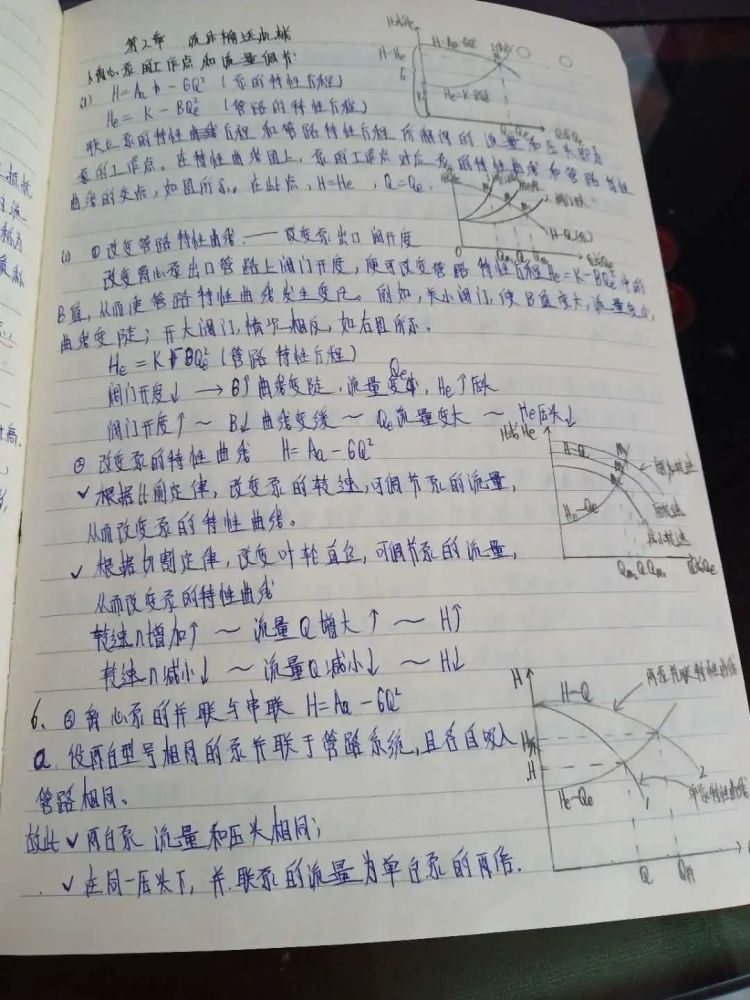 第2章 流体输送机械
1.离心泵的工作点和流量调节
(1) H=Aa - GQ² (泵的特性方程)
He = K - BQe² (管路的特性方程)
联立泵的特性曲线方程和管路特性方程所解得的流量和压头即为
泵的工作点。在特性曲线图上,泵的工作点对应泵的特性曲线和管路特性
曲线的交点,如图所示。在此点,H=He,Q=Qe.
① 改变管路特性曲线——改变泵出口阀开度
改变离心泵出口管路上阀门开度,便可改变管路特性方程He=K-BQe²中的
B值,从而使管路特性曲线发生变化。例如,关小阀门,使B值变大,流量变小,
曲线变陡;开大阀门,情况相反,如右图所示。
He = K+BQe² (管路特性方程)
阀门开度↓ → B↑曲线变陡,流量Qe变小,He↑压头
阀门开度↑ ~ B↓ 曲线变缓 ~ Qe流量变大 ~ He压头↓
② 改变泵的特性曲线 H=Aa-GQ²
✓ 根据比例定律,改变泵的转速,可调节泵的流量,
从而改变泵的特性曲线。
✓ 根据切割定律,改变叶轮直径,可调节泵的流量,
从而改变泵的特性曲线
转速n增加↑ ~ 流量Q增大↑ ~ H↑
转速n减小↓ ~ 流量Q减小↓ ~ H↓
6. ③ 离心泵的并联与串联 H=Aa-GQ²
a. 设两台型号相同的泵并联于管路系统,且各自吸入
管路相同。
故此 ✓ 两台泵 流量和压头相同;
✓ 在同一压头下,并联泵的流量为单台泵的两倍.
H或He
H=Aa-GQ²
He=K-BQe²
Q=Qe
H-Q(泵)
H或He
H-Q
He-Qe
增加转速
原转速
减小转速
H
H-Q
两泵并联特性曲线
H并
H
He-Qe
2
1
单泵特性曲线
Q
Q并